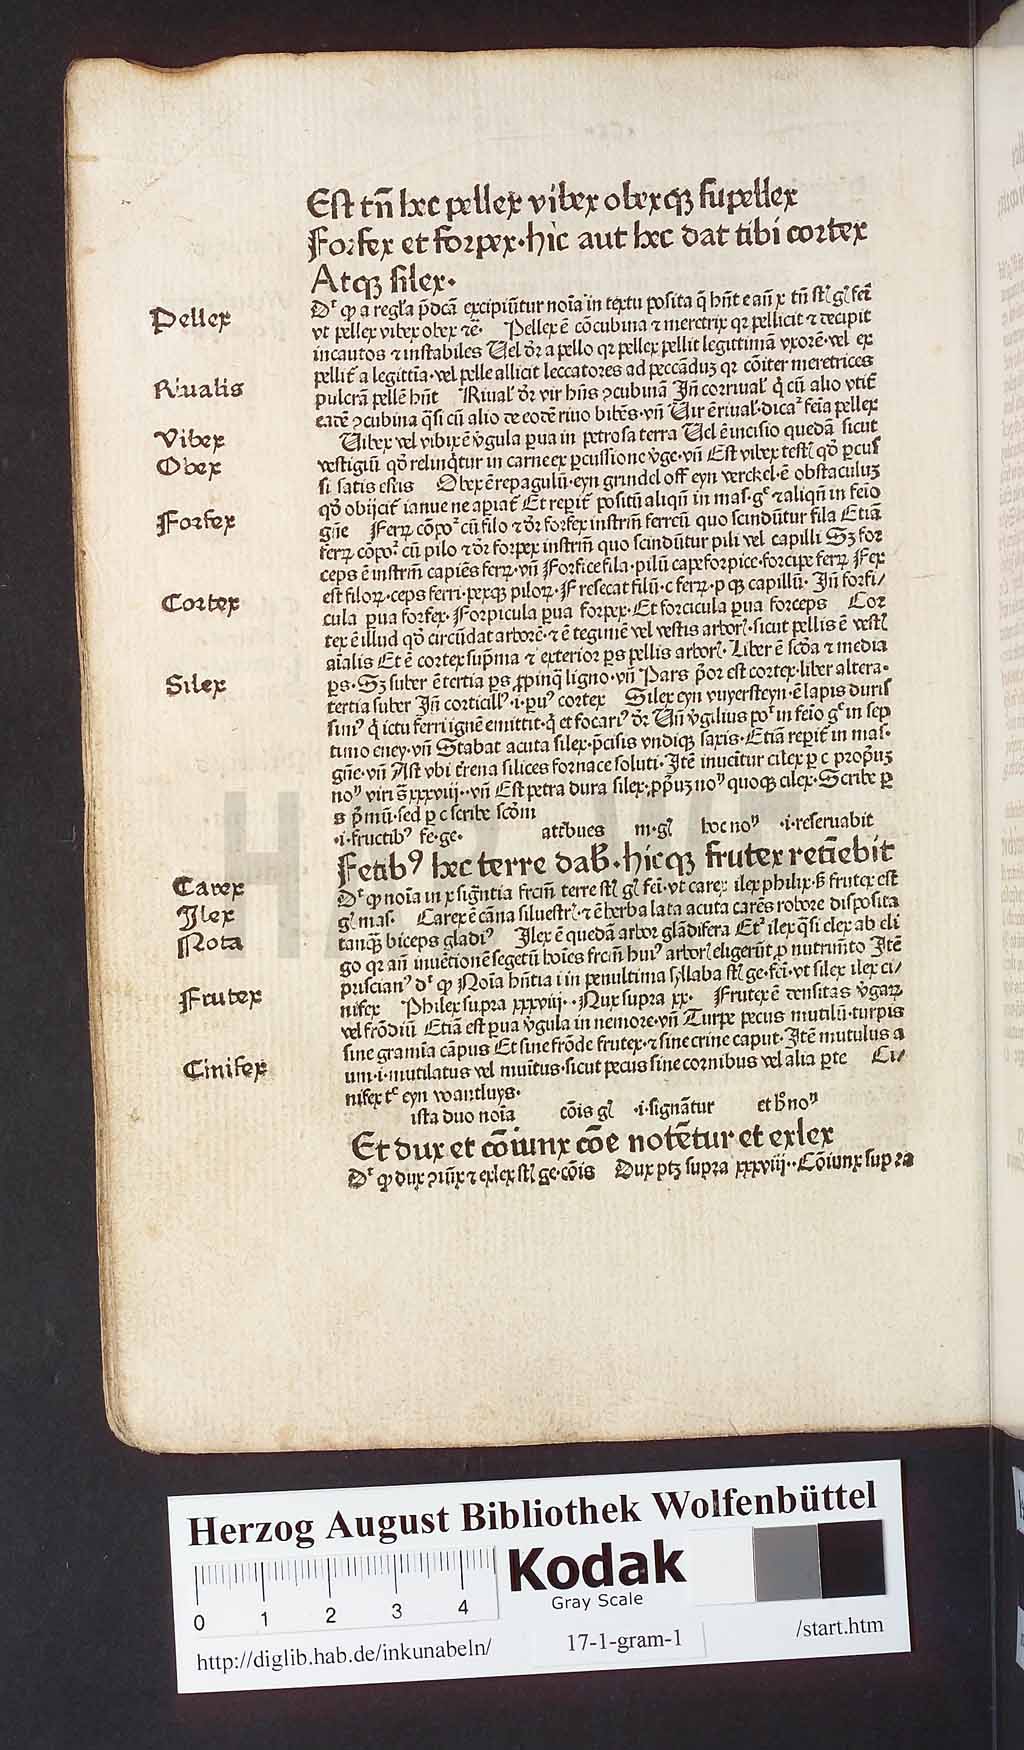 Est tñ hec pellex vibex obexqꝫ supellex
Forfex et forpex·hic aut hec dat tibi cortex
Atqꝫ silex·
Pellex
Dr̃ ꝙ a regl̃a p̃dcã excipiũtur noĩa in textu posita q̃ hñt e añ x tñ st̃ gl̃ fei̅
vt pellex vibex obex ⁊c̃· Pellex ẽ cõcubina ⁊ meretrix qꝛ pellicit ⁊ decipit
incautos ⁊ instabiles Uel dr̃ a pello qꝛ pellex pellit legittimã vxorẽ·vel ex
pellit̃ a legittĩa·vel pelle allicit leccatores ad peccãduꝫ qꝛ cõiter meretrices
Riualis
pulcrã pellẽ hñt Riual̃ dr̃ vir hñs ꝯcubinã Jñ corriual̃ q̃ cũ alio vtit̃
eadẽ ꝯcubina q̃si cũ alio de eodẽ riuo bibẽs·vñ Uir ẽ riual̃·dicaꝛ̃ feĩa pellex
Vibex
Uibex vel vibix ẽ v̾gula ꝑua in petrosa terra Uel ẽ incisio quedã sicut
Obex
vestigiũ qd̃ relinq̃tur in carne ex ꝑcussione v̾ge·vñ Est vibex test̃ qd̃ ꝑcus
si satis estis Obex ẽ repagulũ·eyn grindel off eyn verckel·ẽ obstaculuꝫ
qd̃ obijcit̃ ianue ne aꝑiat̃ Et reꝑit̃ positũ aliqñ in mas·gẽ ⁊ aliqñ in feĩo
Forfex
gñe Ferꝝ cõpoꝛ̃ cũ filo ⁊ dr̃ forfex instrm̃ ferreũ quo scindũtur fila Etiã
ferꝝ cõpoꝛ̃ cũ pilo ⁊ dr̃ forpex instrm̃ quo scindũtur pili vel capilli Sꝫ for
ceps ẽ instrm̃ capiẽs ferꝝ·vñ Forfice fila·pilũ cape forpice·forcipe ferꝝ Fex
est filoꝝ·ceps ferri·pexqꝫ piloꝝ·F resecat filũ·c ferꝝ·p qꝫ capillũ· Jñ forfi/
Cortex
cula ꝑua forfex·Forpicula ꝑua forpex·Et forcicula ꝑua forceps Cor
tex ẽ illud qd̃ circũdat arborẽ·⁊ ẽ tegimẽ vel vestis arboꝛ̃·sicut pellis ẽ vest̃
aĩalis Et ẽ cortex sup̃ma ⁊ exterior ꝑs pellis arboꝛ̃·Liber ẽ scd̃a ⁊ media
Silex
ꝑs·Sꝫ suber ẽ tertia ꝑs ꝓpinq̃ ligno·vñ Pars p̃or est cortex·liber altera·
tertia suber Jñ corticill⁹·i·ꝑu⁹ cortex Silex eyn vuyersteyn·ẽ lapis duris
sim⁹ q̃ ictu ferri ignẽ emittit·q̃ et focari⁹ dr̃ Uñ v̾gilius poꝛ̃ in feĩo gẽ in sep
timo eney·vñ Stabat acuta silex·p̃cisis vndiqꝫ saxis·Etiã reꝑit̃ in mas·
gñe·vñ Ast vbi tr̃ena silices fornace soluti·Jtẽ inueĩtur cilex ꝑ c propriuꝫ
no⁹ viri s̃ xxxviij··vñ Est petra dura silex·ꝓp̃uꝫ no⁹ quoqꝫ cilex·Scribe ꝑ
s p̃mũ·sed ꝑ c scribe scd̃m
·i·fructib⁹ fe·ge· attr̃bues m·gl̃ hoc no⁹ ·i·reseruabit
Fetib⁹ hec terre dab̃·hicqꝫ frutex retiñebit
Carex
Dr̃ ꝙ noĩa in x sigñtia frcm̃ terre st̃ gl̃ fei̅·vt carex ilex philix·s̃ frutex est
Jlex
gl̃ mas· Carex ẽ cãna siluestꝛ̃·⁊ ẽ herba lata acuta carẽs robore disposita
Nota
tanqꝫ biceps gladi⁹ Jlex ẽ quedã arbor glãdifera Etꝛ̃ ilex q̃si elex ab eli
go qꝛ añ inuẽtionẽ segetũ hoĩes frcm̃ hui⁹ arboꝛ̃ eligerũt ꝓ nutrim̃to Jtẽ
priscian⁹ dr̃ ꝙ Noĩa hñtia i in penultima syllaba st̃ ge·fei̅·vt silex ilex ci/
Frutex
nifex Philex supra xxxviij··Nux supra xx· Frutex ẽ densitas v̾gaꝝ
vel frõdiũ Etiã est ꝑua v̾gula in nemore·vñ Turpe pecus mutilũ·turpis
sine gramĩa cãpus Et sine frõde frutex·⁊ sine crine caput·Jtẽ mutulus a
Cinifex
um·i·mutilatus vel muĩtus·sicut pecus sine cornibus vel alia ꝑte Ci/
nifex tẽ eyn wantluys·
ista duo noĩa cõis gl̃ ·i·signãtur et h̾ no⁹
Et dux et cõiunx cõe notẽtur et exlex
Dr̃ ꝙ dux ꝯiũx ⁊ exlex st̃ ge·cõis Dux ptꝫ supra xxxviij··Cõiunx supra
Herzog August Bibliothek Wolfenbüttel
Kodak
Gray Scale
0 1 2 3 4
http://diglib.hab.de/inkunabeln/ 17-1-gram-1 /start.htm